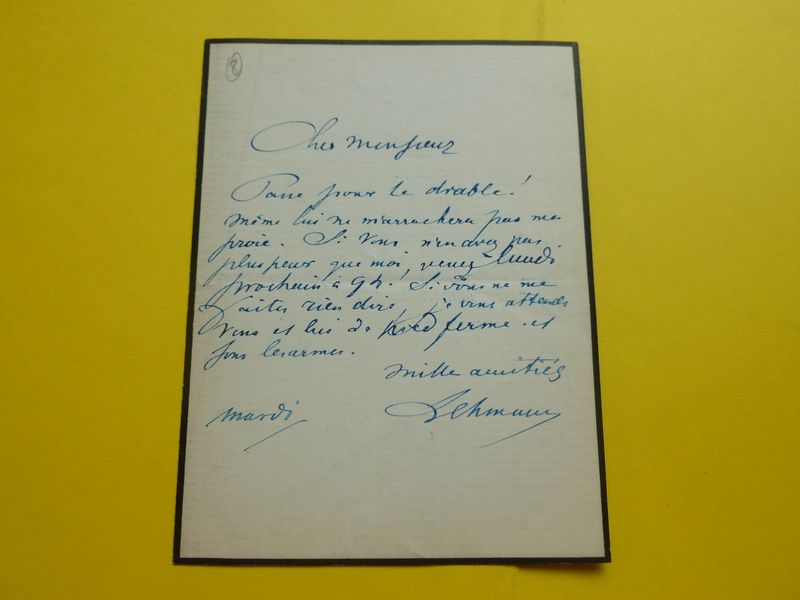 2
Cher monsieur
Passe pour le diable!
même lui ne m'arrachera pas ma
proie. Si vous n'en avez pas
plus peur que moi, venez lundi
prochain à 9h. Si vous ne me
faites rien dire, je vous attends
vous et lui de pied ferme et
sous les armes.
mille amitiés
Lehmann
mardi